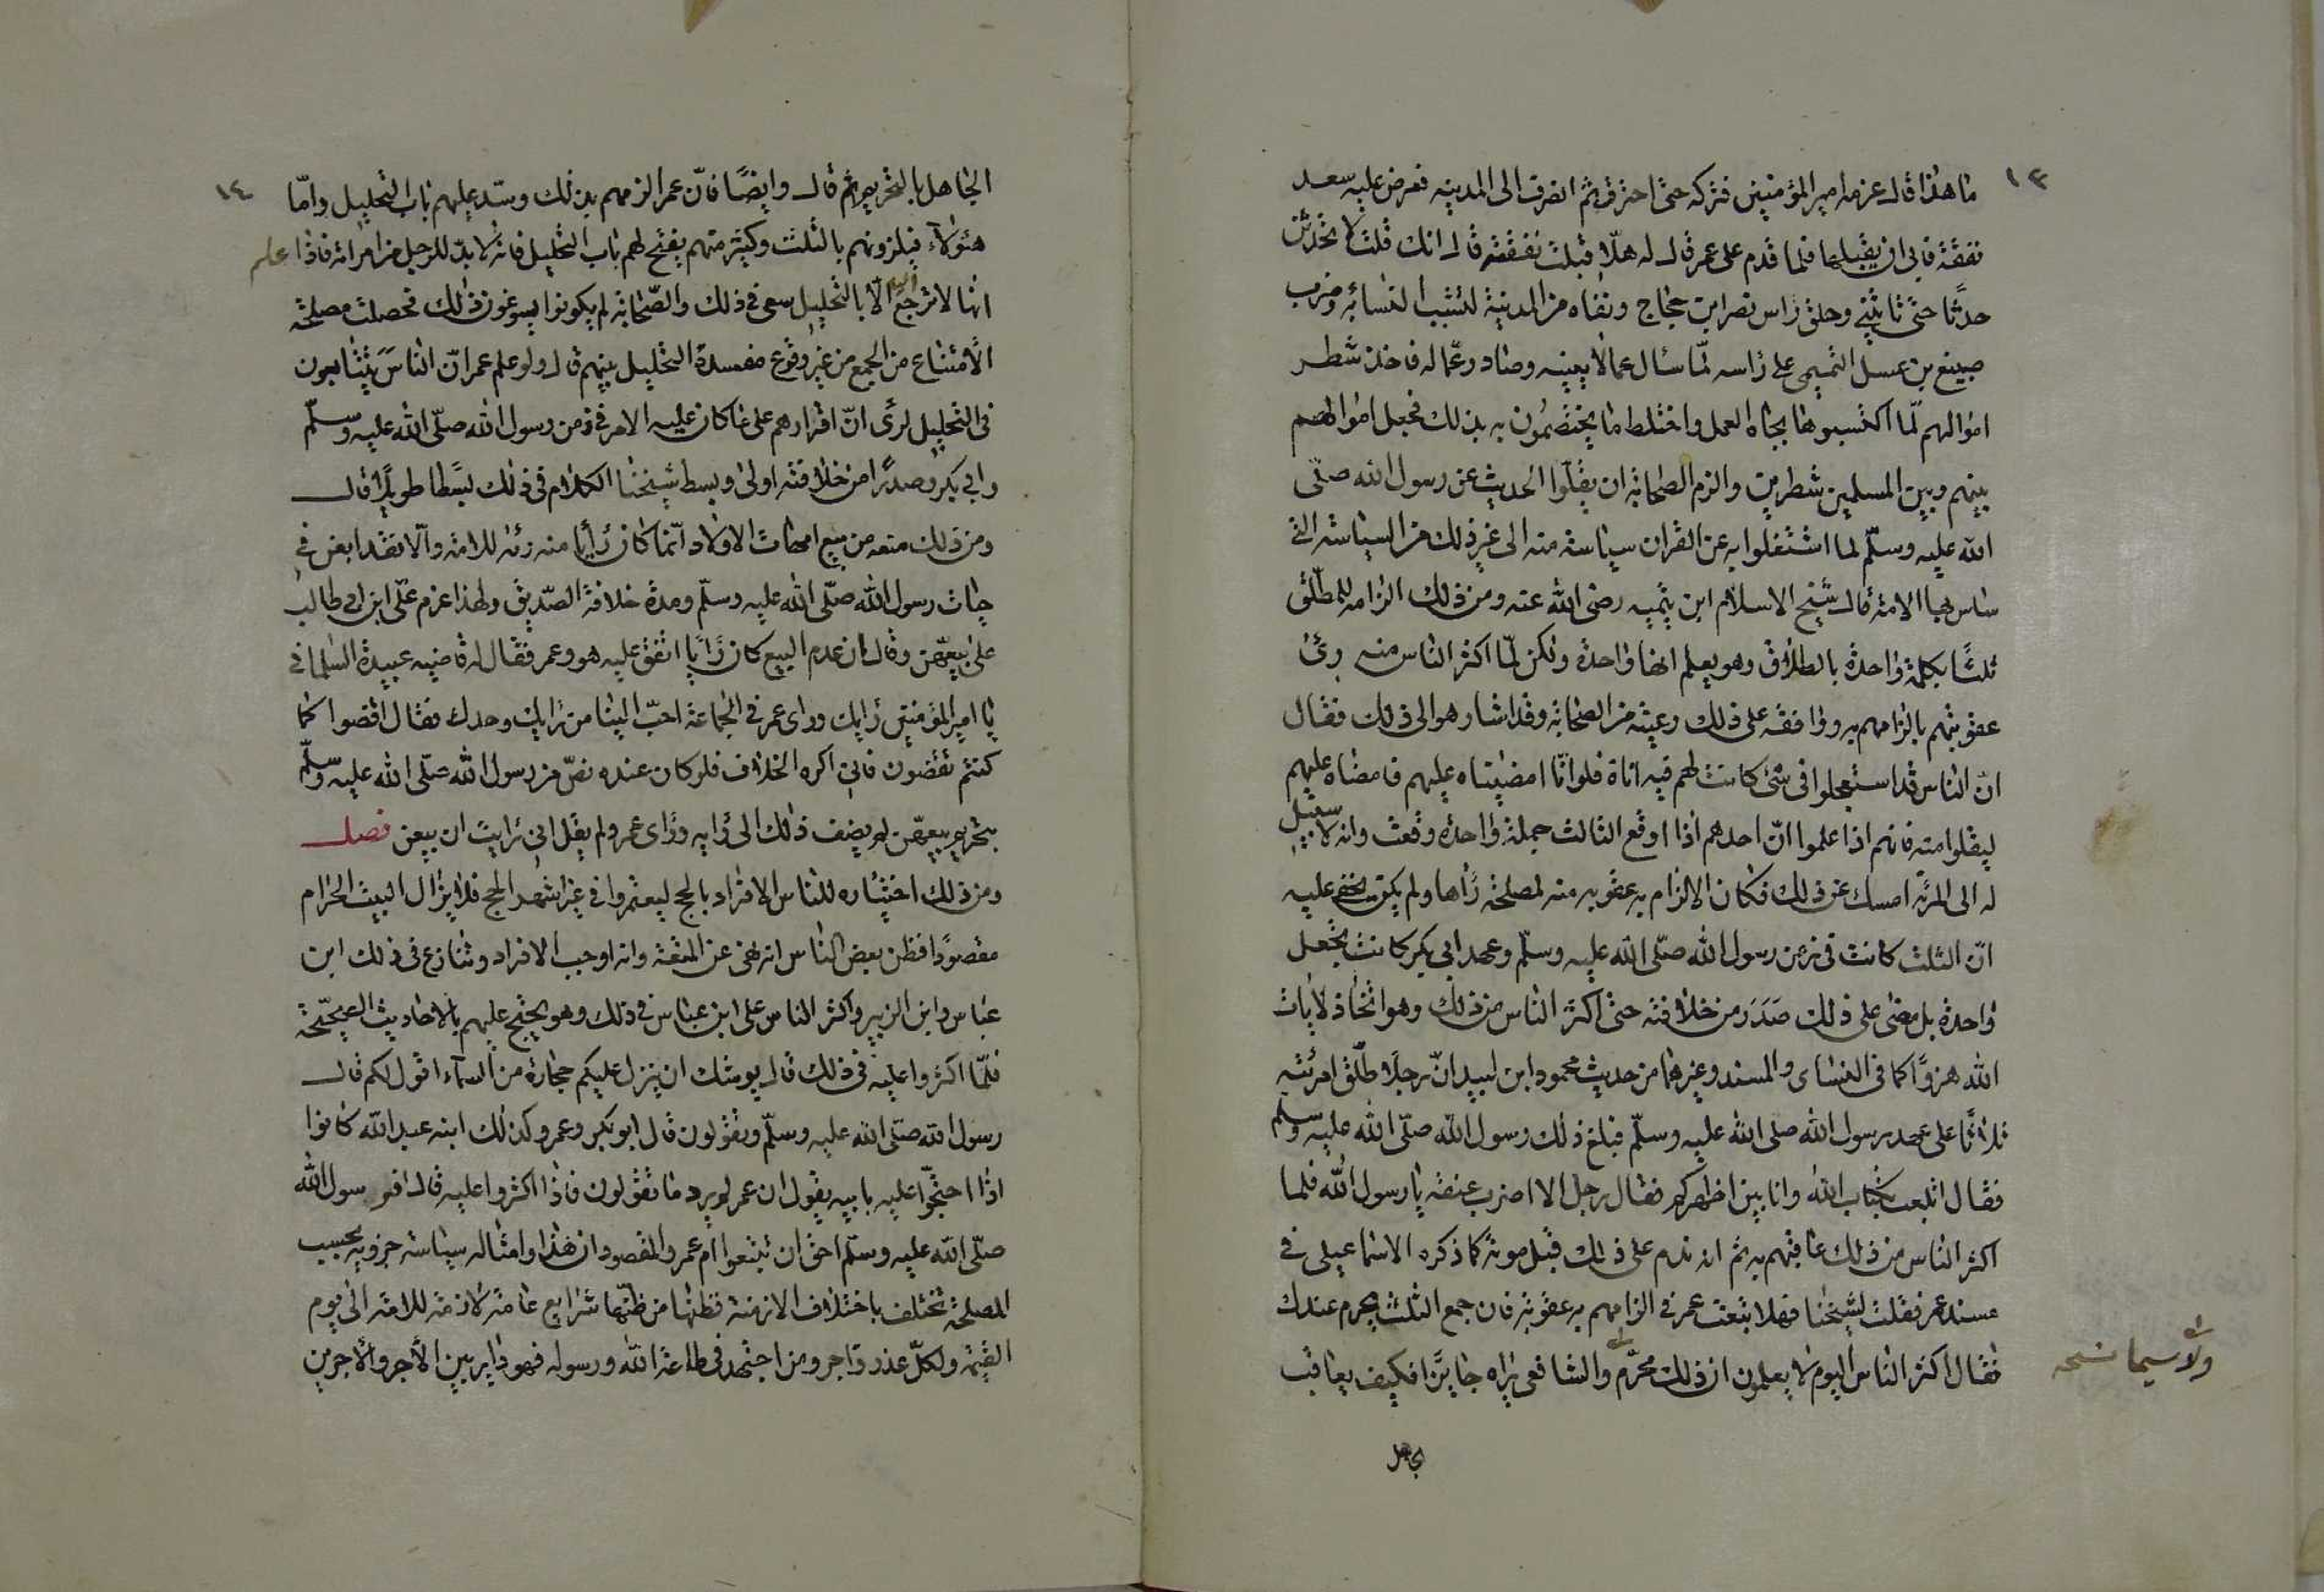 ١٣
ما هذا قال عزمة امير المؤمنين فتركه حتى احترقت ثم انصرف الى المدينه فعرض عليه سعد
نفقة فابى ان يقبلها فلما قدم على عمر قال له هلّا قبلت نفقته قال انك قلت لا تحدثن
حدثًا حتى تاتيني وحلق راس نصر ابن حجاج ونفاه من المدينة لتشبب النساء به وضرب
صبيغ بن عسل التميمى على راسه لمّا سال عما لا يعينه وصادر عماله فاخذ شطر
اموالهم لمّا اكتسبوها بجاه العمل واختلط ما يختصمون به بذلك فجعل اموالهم
بينهم وبين المسلمين شطرين والزم الصحابة ان يقلّوا الحديث عن رسول الله صلّى
الله عليه وسلّم لما اشتغلوا به عن القران سياسة منه الى غير ذلك من السياسة التي
ساس بها الامة قال شيخ الاسلام ابن تيميه رضى الله عنه ومن ذلك الزامه للمطلّق
ثلثًا بكلمة واحدة بالطلاق وهو يعلم انها واحدة ولكن لمّا اكثر الناس منه رئ
عقوبتهم بالزامهم به ووافقه على ذلك رعيته من الصحابة وقد اشار هو الى ذلك فقال
انّ الناس قد استعجلوا فى شئ كانت لهم فيه اناة فلو انّا امضيناه عليهم فامضاه عليهم
ليقلوا منه فانهم اذا علموا انّ احدهم اذا اوقع الثالث جملة واحدة وقعت وانه لا سبيل
له الى المرئة امسك عن ذلك فكان الالزام به عقوبه منه لمصلحة راها ولم يكن يخفى عليه
انّ الثلث كانت فى زمن رسول الله صلّى الله عليه وسلّم وعهد ابى بكر كانت تجعل
واحدة بل مضى على ذلك صَدَرَ من خلافته حتى اكثر الناس من ذلك وهو اتخاذ لايات
الله هزوًا كما فى النساى والمسند وغيرهما من حديث محمود ابن لبيد انّ رجلًا طلّق امرئته
ثلاثًا على عهد رسول الله صلى الله عليه وسلّم فبلغ ذلك رسول الله صلّى الله عليه وسلّم
فقال اتلعب بكتاب الله وانا بين اظهركم فقال رجل الا اضرب عنقه يا رسول الله فلما
اكثر الناس من ذلك عاقبهم به ثم انه ندم على ذلك قبل موته كما ذكره الاسماعيلى فى
مسند عمر فقلت لشيخنا فهلا تبعت عمر فى الزامهم به عقوبة فان جمع الثلث يحرم عندك
فقال اكثر الناس اليوم لا يعلمون ان ذلك محرّم والشافعى يراه جايزًا فكيف يعاقب
ولا سيما نسخه
١٤
الجاهل بالتحريم ثم قال وايضًا فانّ عمر الزمهم بذلك وسدّ عليهم باب التحليل وامّا
هئولآء فيلزونهم بالثلث وكثير منهم يفتح لهم باب التحليل فانه لا بدّ للرجل من امراته فاذا علم
انها لا ترجع اليه الّا بالتحليل سعى فى ذلك والصّحابة لم يكونوا يسوغون ذلك فحصلت مصلحة
الامتناع من الجمع من غير وقوع مفسدة التحليل بينهم قال ولو علم عمر انّ الناسَ يتتابعون
فى التحليل لرئ انّ اقرارهم على ما كان عليه الامر فى زمن رسول الله صلّى الله عليه وسلّم
وابى بكر وصدرًا من خلافته اولى وبسط شيخنا الكلام فى ذلك بسطًا طويلًا قال
ومن ذلك منعه من بيع امهات الاولاد انّما كان رأيا منه رئه للامة والّا فقد ابعن فى
حيات رسول الله صلّى الله عليه وسلّم ومدة خلافة الصّديق ولهذا عزم علّى ابن ابى طالب
على بيعهّن وقال ان عدم البيع كان رايًا اتفق عليه هو وعمر فقال له قاضيه عبيدة السلمانى
يا امير المؤمنين رايك وراى عمر فى الجماعة احبّ الينا من رايك وحدك فقال اقضوا كما
كنتم تقضون فانى اكره الخلاف فلو كان عنده نصّ من رسول الله صلّى الله عليه وسلّم
بتحريم بيعهّن لم يضف ذلك الى رايه وراى عمر ولم يقل انى رايت ان يبعن فصل
ومن ذلك اختياره للناس الافراد بالحج ليعتمروا فى غير اشهر الحج فلا يزال البيت الحرام
مقصودًا فظن بعض الناس انه نهى عن المتعة وانه اوجب الافراد وتنازع فى ذلك ابن
عباس وابن الزبير واكثر الناس على ابن عباس فى ذلك وهو يحتج عليهم بالاحاديث الصحيحة
فلمّا اكثروا عليه فى ذلك قال يوشك ان ينزل عليكم حجارة من السمآء اقول لكم قال
رسول الله صلّى الله عليه وسلّم وتقولون قال ابو بكر وعمر وكذلك ابنه عبد الله كانوا
اذا احتجّوا عليه بابيه يقول ان عمر لم يرد ما تقولون فاذا اكثروا عليه قال افرسول الله
صلّى الله عليه وسلّم احق ان تتبعوا ام عمر والمقصود ان هذا وامثاله سياسة جزويه بحسب
المصلحة تختلف باختلاف الازمنة فظنها من ظنّها شرايع عامة لازمة للامة الى يوم
القيمة ولكلّ عذر واجر ومن اجتهد فى طاعة الله ورسوله فهو داير بين الأجر والأجرين